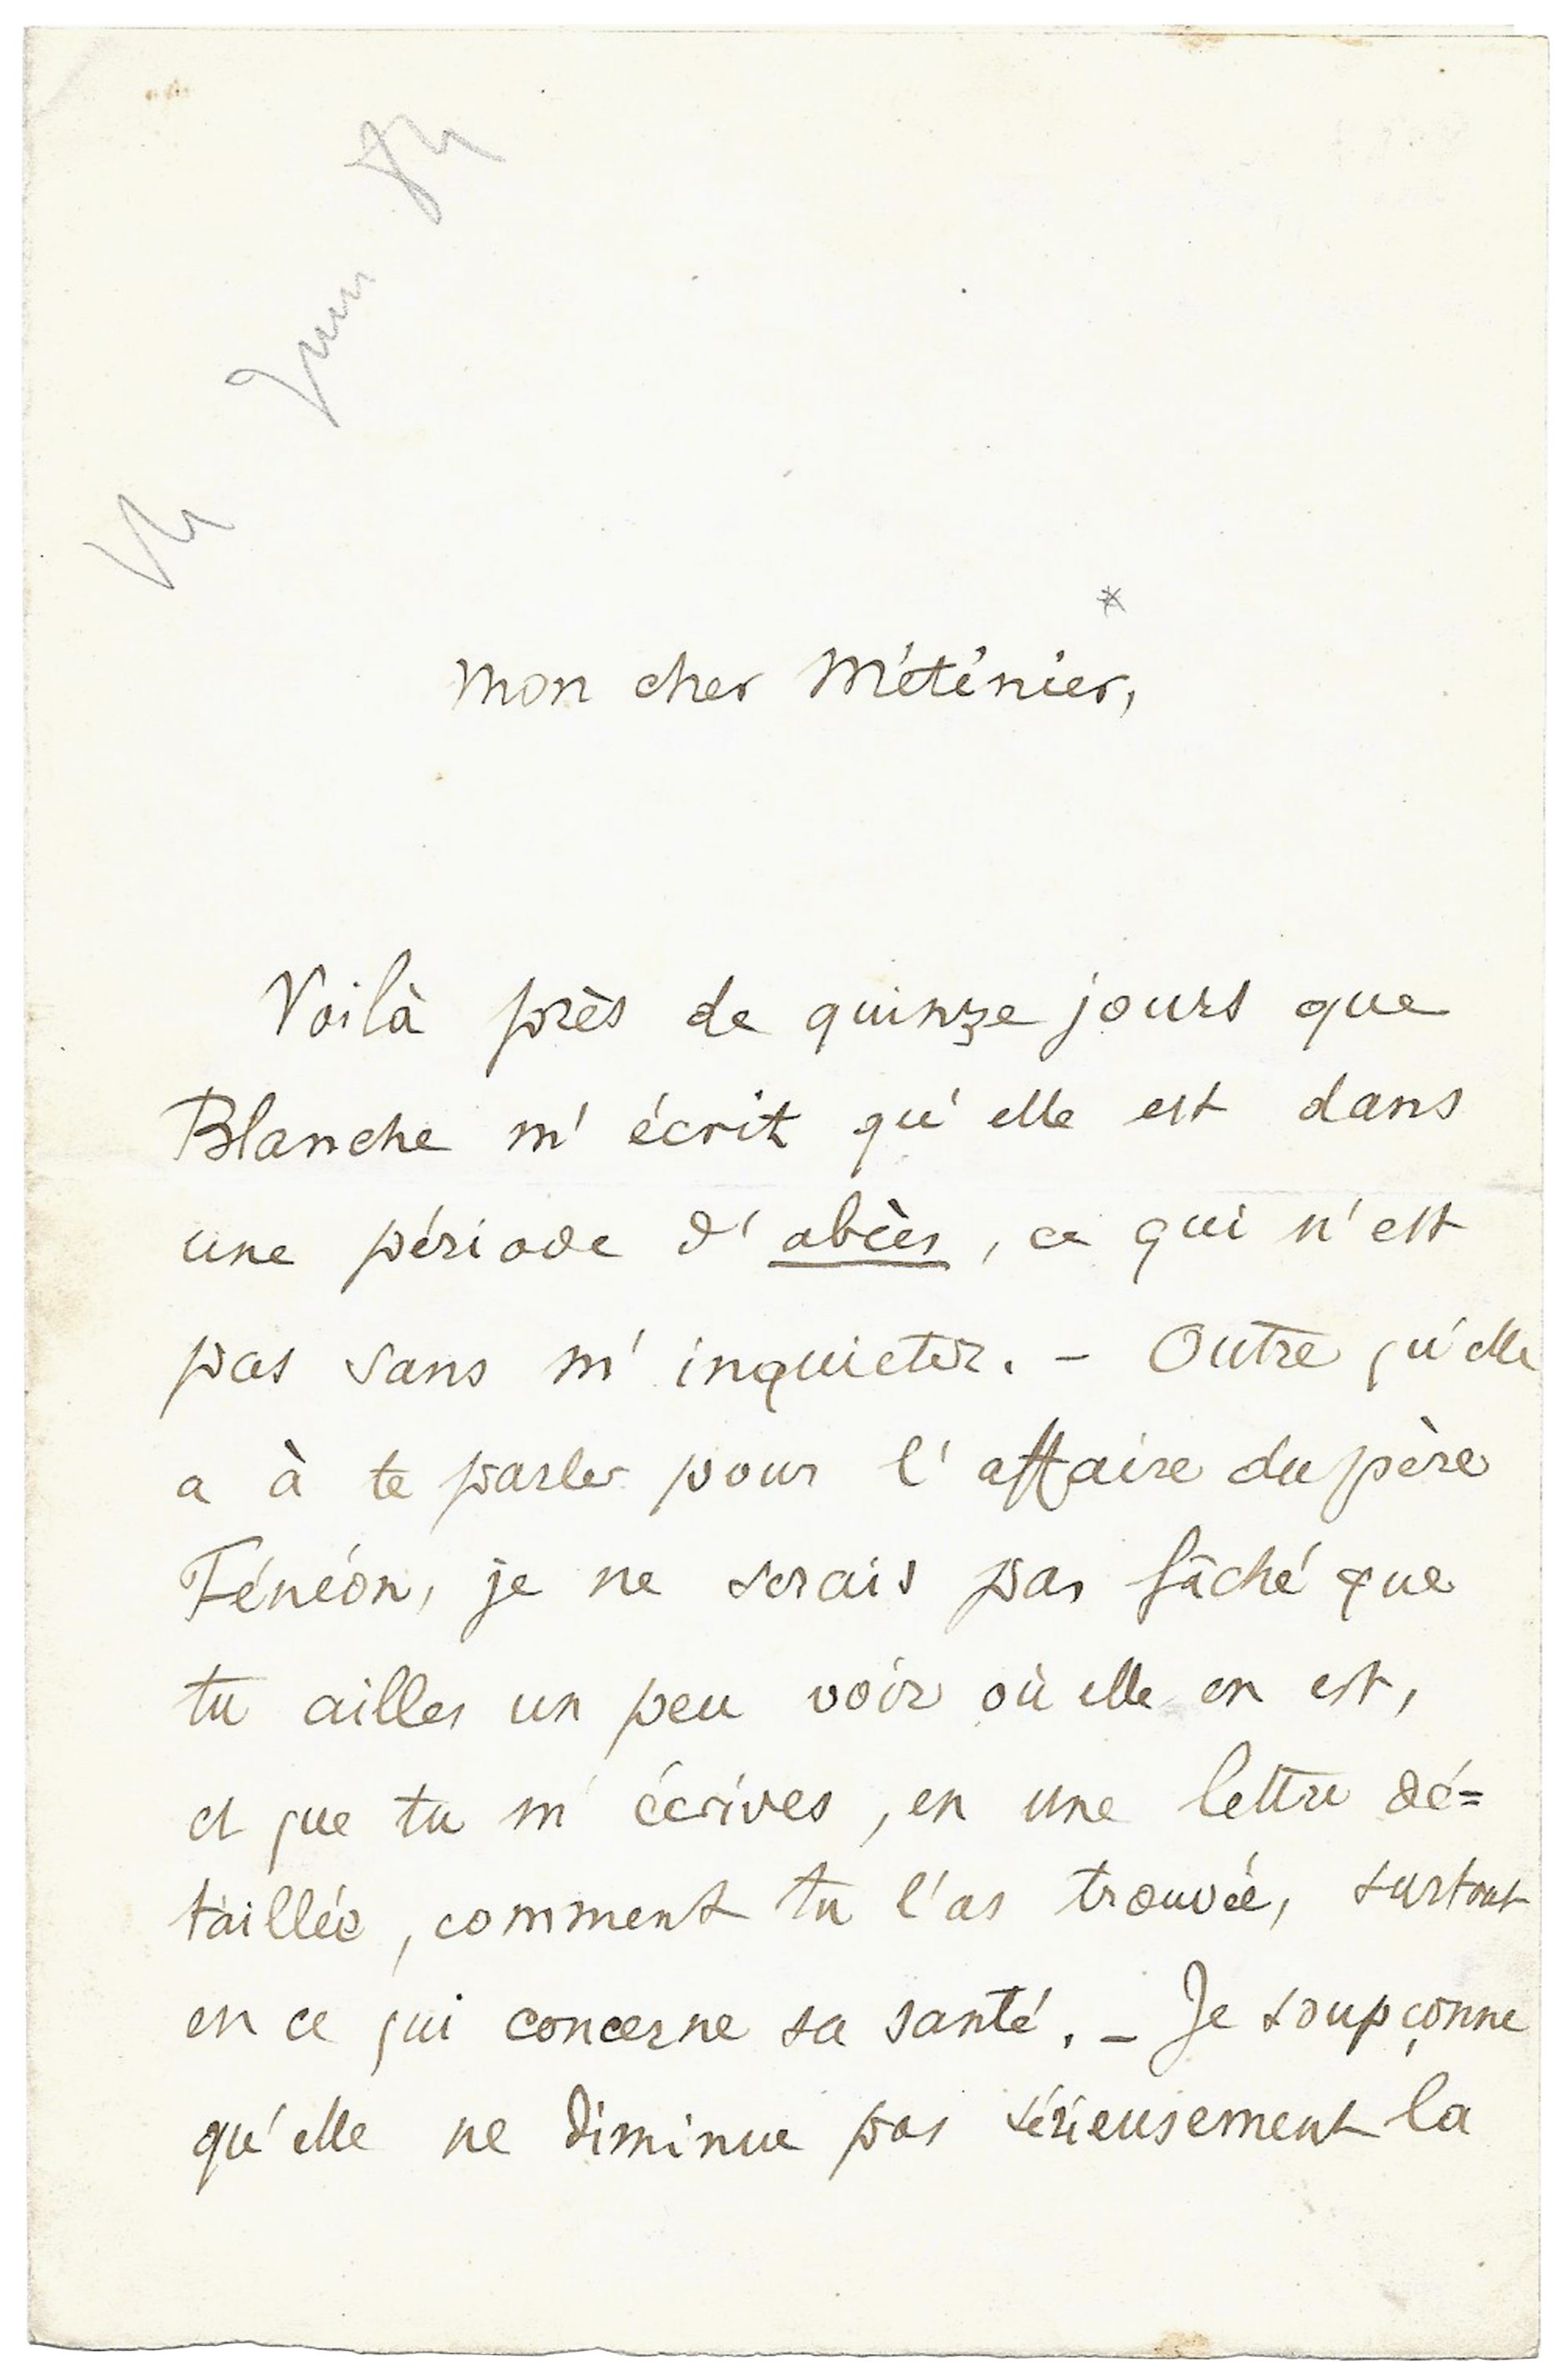 Juin 84
Mon cher Méténier,
Voilà près de quinze jours que
Blanche m'écrit qu'elle est dans
une période d'abcès, ce qui n'est
pas sans m'inquieter. – Outre qu'elle
a à te parler pour l'affaire du père
Fénéon, je ne serais pas fâché que
tu ailles un peu voir où elle en est,
et que tu m'écrives, en une lettre dé=
taillée, comment tu l'as trouvée, surtout
en ce qui concerne sa santé. – Je soupçonne
qu'elle ne diminue pas sérieusement la